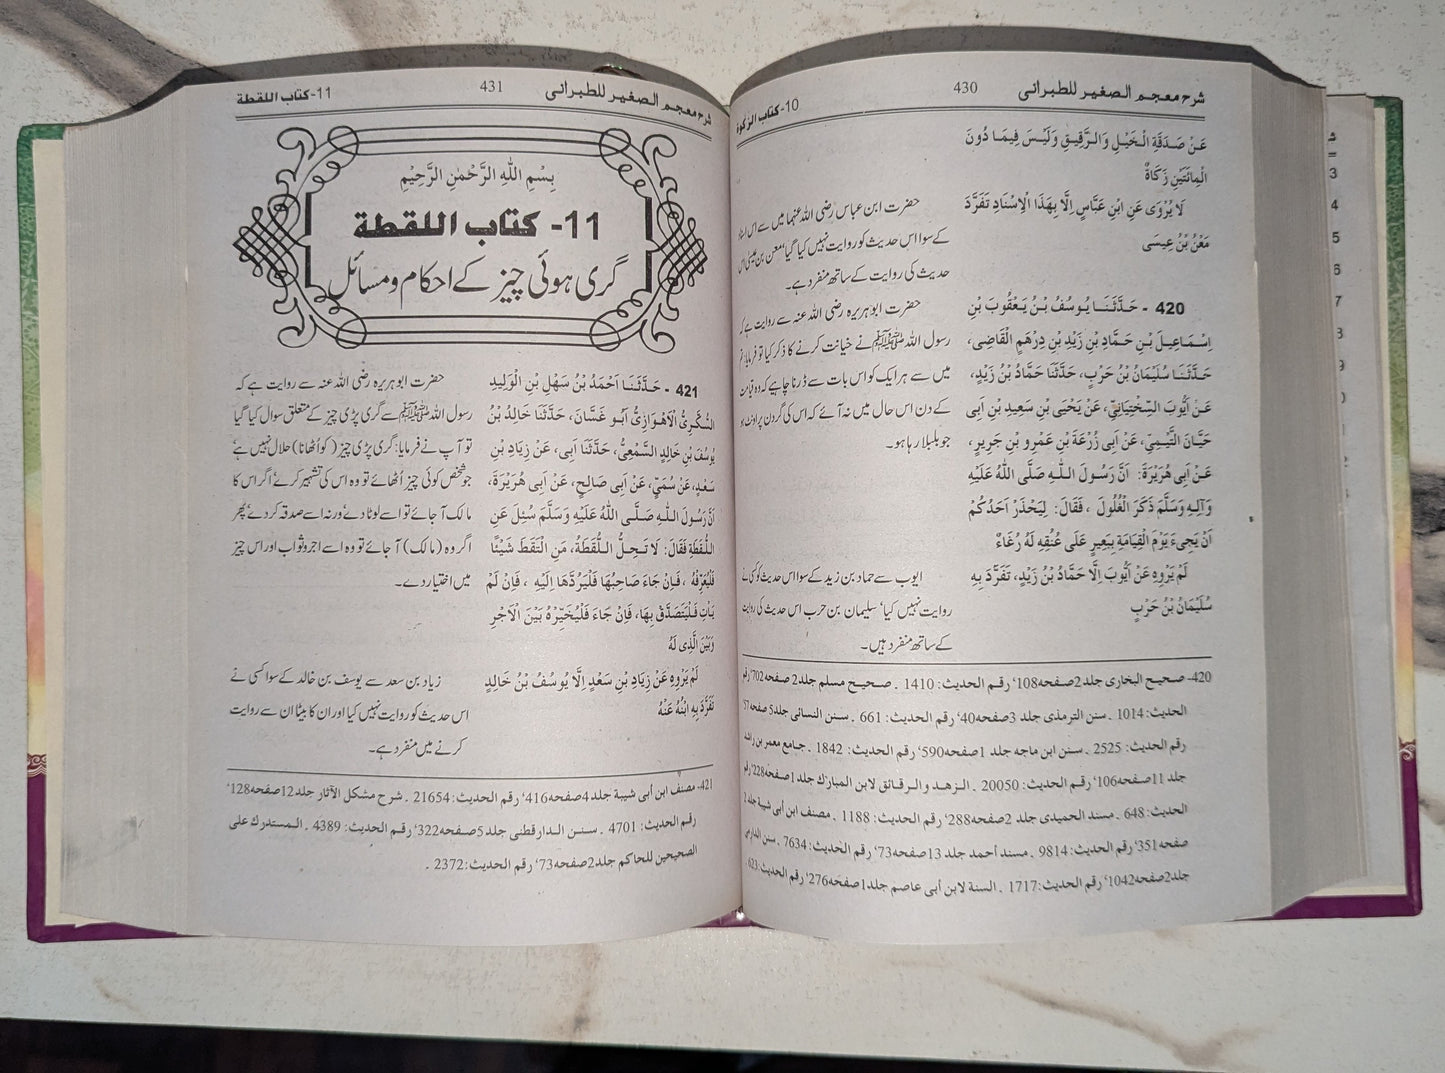 شرح معجم الصغير للطبرانى
430
10-كتاب الزكوة
عَنْ صَدَقَةِ الْخَيْلِ وَالرَّقِيقِ وَلَيْسَ فِيمَا دُونَ
الْمِائَتَيْنِ زَكَاةٌ
لَا يُرْوَى عَنِ ابْنِ عَبَّاسٍ اِلَّا بِهَذَا الْاِسْنَادِ تَفَرَّدَ
مَعْنُ بْنُ عِيسَى
420 - حَدَّثَنَا يُوسُفُ بْنُ يَعْقُوبَ بْنِ
اِسْمَاعِيلَ بْنِ حَمَّادِ بْنِ زَيْدِ بْنِ دِرْهَمٍ الْقَاضِى،
حَدَّثَنَا سُلَيْمَانُ بْنُ حَرْبٍ، حَدَّثَنَا حَمَّادُ بْنُ زَيْدٍ،
عَنْ اَيُّوبَ السَّخْتِيَانِيِّ، عَنْ يَحْيَى بْنِ سَعِيدِ بْنِ اَبِى
حَيَّانَ التَّيْمِيِّ، عَنْ اَبِى زُرْعَةَ بْنِ عَمْرِو بْنِ جَرِيرٍ،
عَنْ اَبِى هُرَيْرَةَ: اَنَّ رَسُولَ اللّٰهِ صَلَّى اللّٰهُ عَلَيْهِ
وَآلِهِ وَسَلَّمَ ذَكَرَ الْغُلُولَ ، فَقَالَ: لِيَحْذَرْ اَحَدُكُمْ
اَنْ يَجِىءَ يَوْمَ الْقِيَامَةِ بِبَعِيرٍ عَلَى عُنُقِهِ لَهُ رُغَاءٌ
لَمْ يَرْوِهِ عَنْ اَيُّوبَ اِلَّا حَمَّادُ بْنُ زَيْدٍ، تَفَرَّدَ بِهِ
سُلَيْمَانُ بْنُ حَرْبٍ
حضرت ابن عباس رضی اللہ عنہما میں سے اس
کے سوا اس حدیث کو روایت نہیں کیا گیا معن بن عیسیٰ اس
حدیث کی روایت کے ساتھ منفرد ہے۔
حضرت ابو ہریرہ رضی اللہ عنہ سے روایت ہے کہ
رسول اللہ ﷺ نے خیانت کرنے کا ذکر کیا تو فرمایا: تم
میں سے ہر ایک کو اس بات سے ڈرنا چاہیے کہ وہ قیامت
کے دن اس حال میں نہ آئے کہ اس کی گردن پر اونٹ ہو
جو بلبلا رہا ہو۔
ایوب سے حماد بن زید کے سوا اس حدیث کو کسی نے
روایت نہیں کیا، سلیمان بن حرب اس حدیث کی روایت
کے ساتھ منفرد ہیں۔
420- صحيح البخارى جلد2صفحه108‘ رقم الحديث: 1410 . صحيح مسلم جلد2 صفحه702‘ رقم
الحديث: 1014 . سنن الترمذى جلد 3صفحه40‘ رقم الحديث: 661 . سنن النسائى جلد5 صفحه57
رقم الحديث: 2525 . سنن ابن ماجه جلد 1صفحه590‘ رقم الحديث: 1842 . جامع معمر بن راشد
جلد 11صفحه106‘ رقم الحديث: 20050 . الزهد والرقائق لابن المبارك جلد 1صفحه228‘ رقم
الحديث: 648 . مسند الحميدى جلد 2صفحه288‘ رقم الحديث: 1188 . مصنف ابن أبى شيبة جلد2
صفحه351‘ رقم الحديث: 9814 . مسند أحمد جلد 13صفحه73‘ رقم الحديث: 7634 . سنن الدارمى
جلد2صفحه1042‘ رقم الحديث: 1717 . السنة لابن أبى عاصم جلد1صفحه276‘ رقم الحديث: 623 .
شرح معجم الصغير للطبرانى
431
11-كتاب اللقطة
بِسْمِ اللّٰهِ الرَّحْمٰنِ الرَّحِيْمِ
11- كتاب اللقطة
گری ہوئی چیز کے احکام و مسائل
421 - حَدَّثَنَا اَحْمَدُ بْنُ سَهْلِ بْنِ الْوَلِيدِ
السُّكَّرِىُّ الْاَهْوَازِىُّ اَبُو غَسَّانَ، حَدَّثَنَا خَالِدُ بْنُ
يُوسُفَ بْنِ خَالِدٍ السَّمْتِىُّ، حَدَّثَنَا اَبِى، عَنْ زِيَادِ بْنِ
سَعْدٍ، عَنْ سُمَيٍّ، عَنْ اَبِى صَالِحٍ، عَنْ اَبِى هُرَيْرَةَ،
اَنَّ رَسُولَ اللّٰهِ صَلَّى اللّٰهُ عَلَيْهِ وَسَلَّمَ سُئِلَ عَنِ
اللُّقَطَةِ فَقَالَ: لَا تَحِلُّ اللُّقَطَةُ، مَنِ الْتَقَطَ شَيْئًا
فَلْيُعَرِّفْهُ ، فَاِنْ جَاءَ صَاحِبُهَا فَلْيَرُدَّهَا اِلَيْهِ ، فَاِنْ لَمْ
يَاْتِ فَلْيَتَصَدَّقْ بِهَا، فَاِنْ جَاءَ فَلْيُخَيِّرْهُ بَيْنَ الْاَجْرِ
وَبَيْنَ الَّذِى لَهُ
لَمْ يَرْوِهِ عَنْ زِيَادِ بْنِ سَعْدٍ اِلَّا يُوسُفُ بْنُ خَالِدٍ
تَفَرَّدَ بِهِ ابْنُهُ عَنْهُ
حضرت ابو ہریرہ رضی اللہ عنہ سے روایت ہے کہ
رسول اللہ ﷺ سے گری پڑی چیز کے متعلق سوال کیا گیا
تو آپ نے فرمایا: گری پڑی چیز (کو اُٹھانا) حلال نہیں ہے
جو شخص کوئی چیز اُٹھائے تو وہ اس کی تشہیر کرے‘ اگر اس کا
مالک آ جائے تو اسے لوٹا دے‘ ورنہ اسے صدقہ کر دے‘ پھر
اگر وہ (مالک) آ جائے تو وہ اسے اجر و ثواب اور اس چیز
میں اختیار دے۔
زیاد بن سعد سے یوسف بن خالد کے سوا کسی نے
اس حدیث کو روایت نہیں کیا اور ان کا بیٹا ان سے روایت
کرنے میں منفرد ہے۔
421- مصنف ابن أبى شيبة جلد 4صفحه416‘ رقم الحديث: 21654 . شرح مشكل الآثار جلد12صفحه128‘
رقم الحديث: 4701 . سنن الدارقطنى جلد 5صفحه322‘ رقم الحديث: 4389 . المستدرك على
الصحيحين للحاكم جلد2صفحه73‘ رقم الحديث: 2372 .